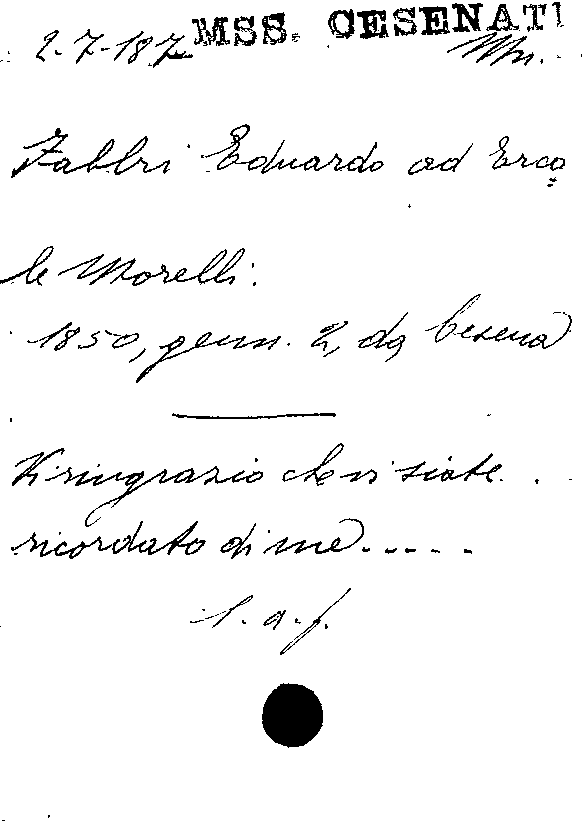 MSS. CESENATI
2-7-187 Mn.
Fabbri Eduardo ad Erco=
le Morelli.
1850, genn. 2, da Cesena
Vi ringrazio che vi siate..
ricordato di me.....
l. a. f.